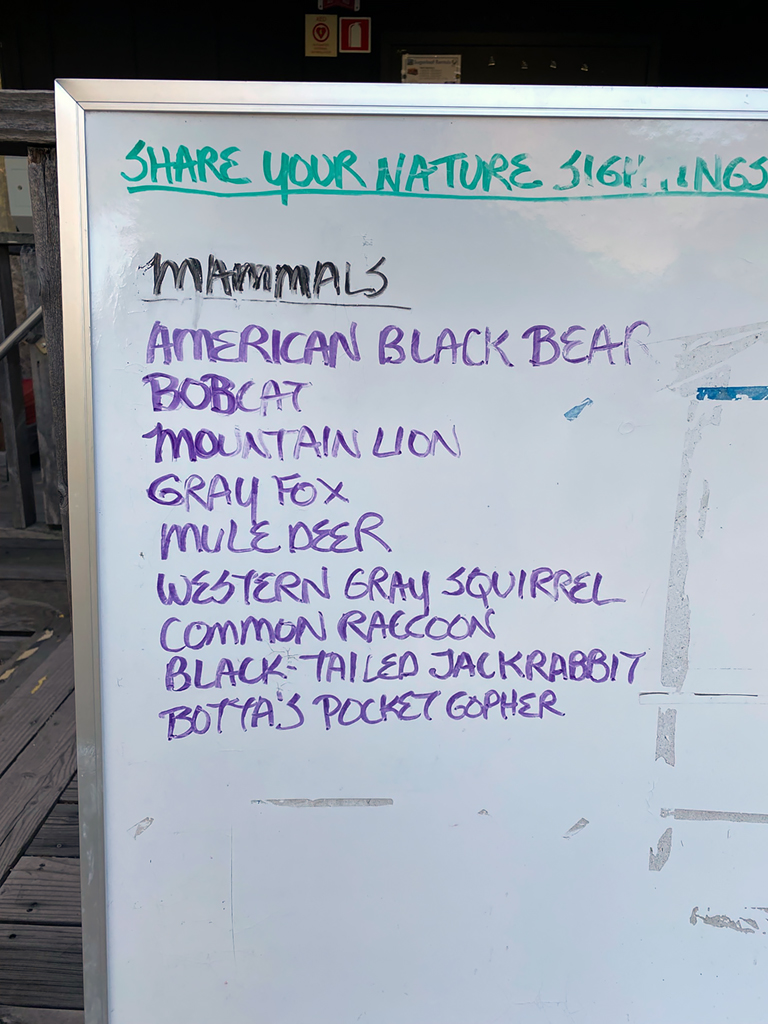 SHARE YOUR NATURE SIGHTINGS
MAMMALS
AMERICAN BLACK BEAR
BOBCAT
MOUNTAIN LION
GRAY FOX
MULE DEER
WESTERN GRAY SQUIRREL
COMMON RACCOON
BLACK-TAILED JACKRABBIT
BOTTA'S POCKET GOPHER